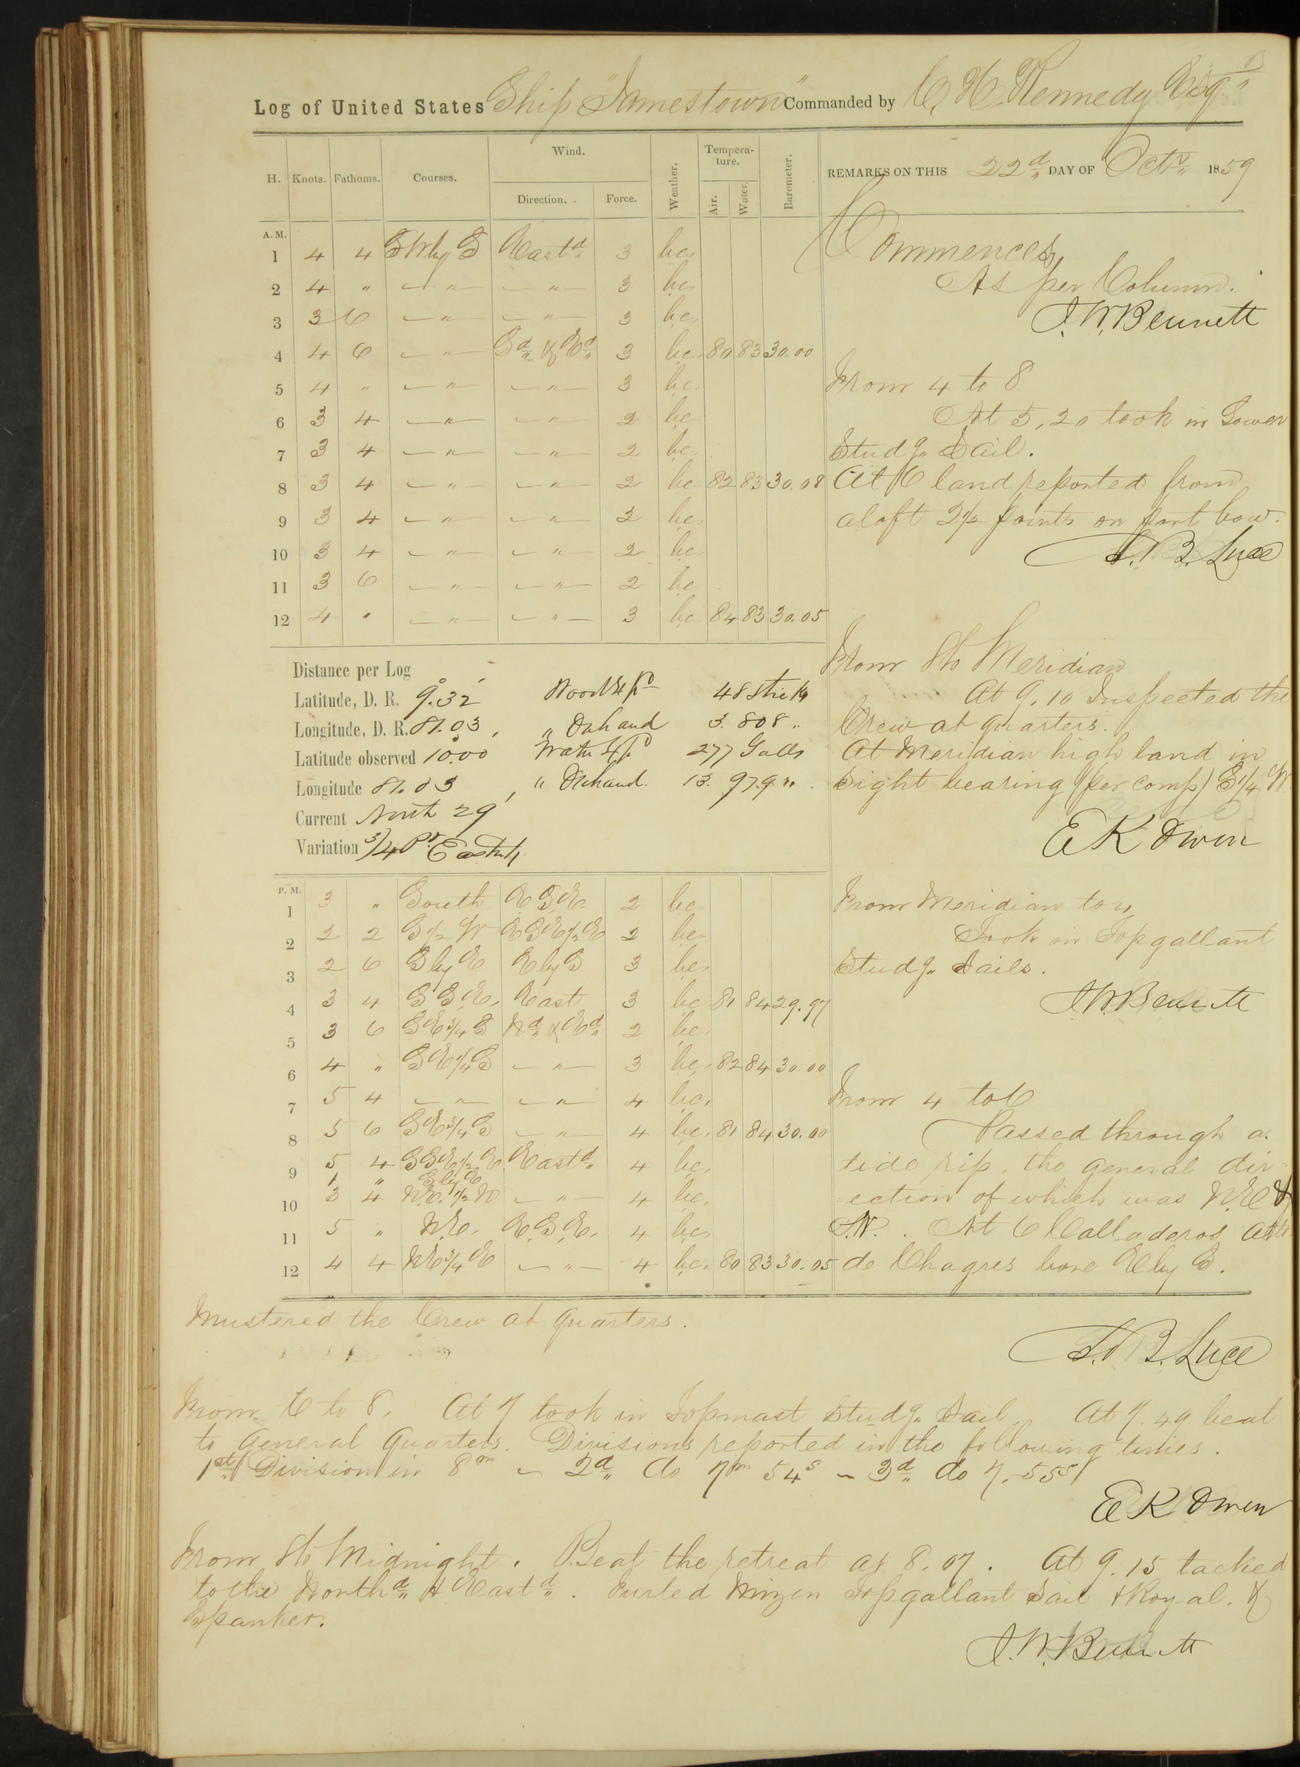 Log of United States Ship "Jamestown" Commanded by C. H. Kennedy Esqr
H. Knots. Fathoms. Courses. Wind. Direction. Force. Weather. Tempera-ture. Air. Water. Barometer. REMARKS ON THIS 22d DAY OF Octr 1859
A. M.
1 4 4 SW by S Eastd 3 bc
2 4 " — " — — " — 3 bc
3 3 6 — " — — " — 3 bc
4 4 6 — " — Sd & Ed 3 bc 80 83 30.00
5 4 " — " — — " — 3 bc
6 3 4 — " — — " — 2 bc
7 3 4 — " — — " — 2 bc
8 3 4 — " — — " — 2 bc 82 83 30.08
9 3 4 — " — — " — 2 bc
10 3 4 — " — — " — 2 bc
11 3 6 — " — — " — 2 bc
12 4 " — " — — " — 3 bc 84 83 30.05
Commences,
As per Column.
J. W. Bennett
From 4 to 8
At 5,20 took in Lower
Studg. Sail.
At 6 land reported from
aloft 2½ points on port bow.
S. B. Luce
From 8 to Meridian
At 9,10 Inspected the
Crew at quarters.
At Meridian high land in
sight bearing (per comp) S¼ W.
E K Owen
Distance per Log
Latitude, D. R. 9.32 Wood Expd 48 sticks
Longitude, D. R. 81.03, " On hand 3.808 "
Latitude observed 10.00 Water Expd 277 Galls
Longitude 81.03, " On hand 13.979 "
Current North 29'
Variation 3/4 Pt Eastly
P. M.
1 3 " South ESE 2 bc
2 2 2 S½ W ESE½E 2 bc
3 2 6 S by E E by S 3 bc
4 3 4 S S E, East 3 bc 81 84 29.97
5 3 6 SE¾ S Nd & Ed 2 bc
6 4 " SE¼S — " — 3 bc 82 84 30.00
7 5 4 — " — — " — 4 bc
8 5 6 SE¾S — " — 4 bc 81 84 30.00
9 5 4 SSE½E Eastd 4 bc
1 " S by E
10 3 4 N.E. ½ N — " — 4 bc
11 5 " N.E. E.S.E. 4 bc
12 4 4 NE¾ E — " — 4 bc 80 83 30.05
From Meridian to 4,
Took in Topgallant
Studg. Sails.
J. W. Bennett
From 4 to 6
Passed through a
tide rip, the general dir-
ection of which was N.E &
S.W. At 6 Calladeros
de Chagres bore E by S.
Mustered the Crew at quarters.
S. B. Luce
From 6 to 8, At 7 took in Topmast Studg. Sail At 7.49 beat
to General Quarters. Divisions reported in the following times.
1st Division in 8m — 2d do 7m 54s — 3d do 7.55s
E K Owen
From 8 to Midnight. Beat the retreat at 8.07. At 9.15 tacked
to the Northd & Eastd. Furled Mizen Topgallant Sail & Royal, &
Spanker.
J. W. Bennett